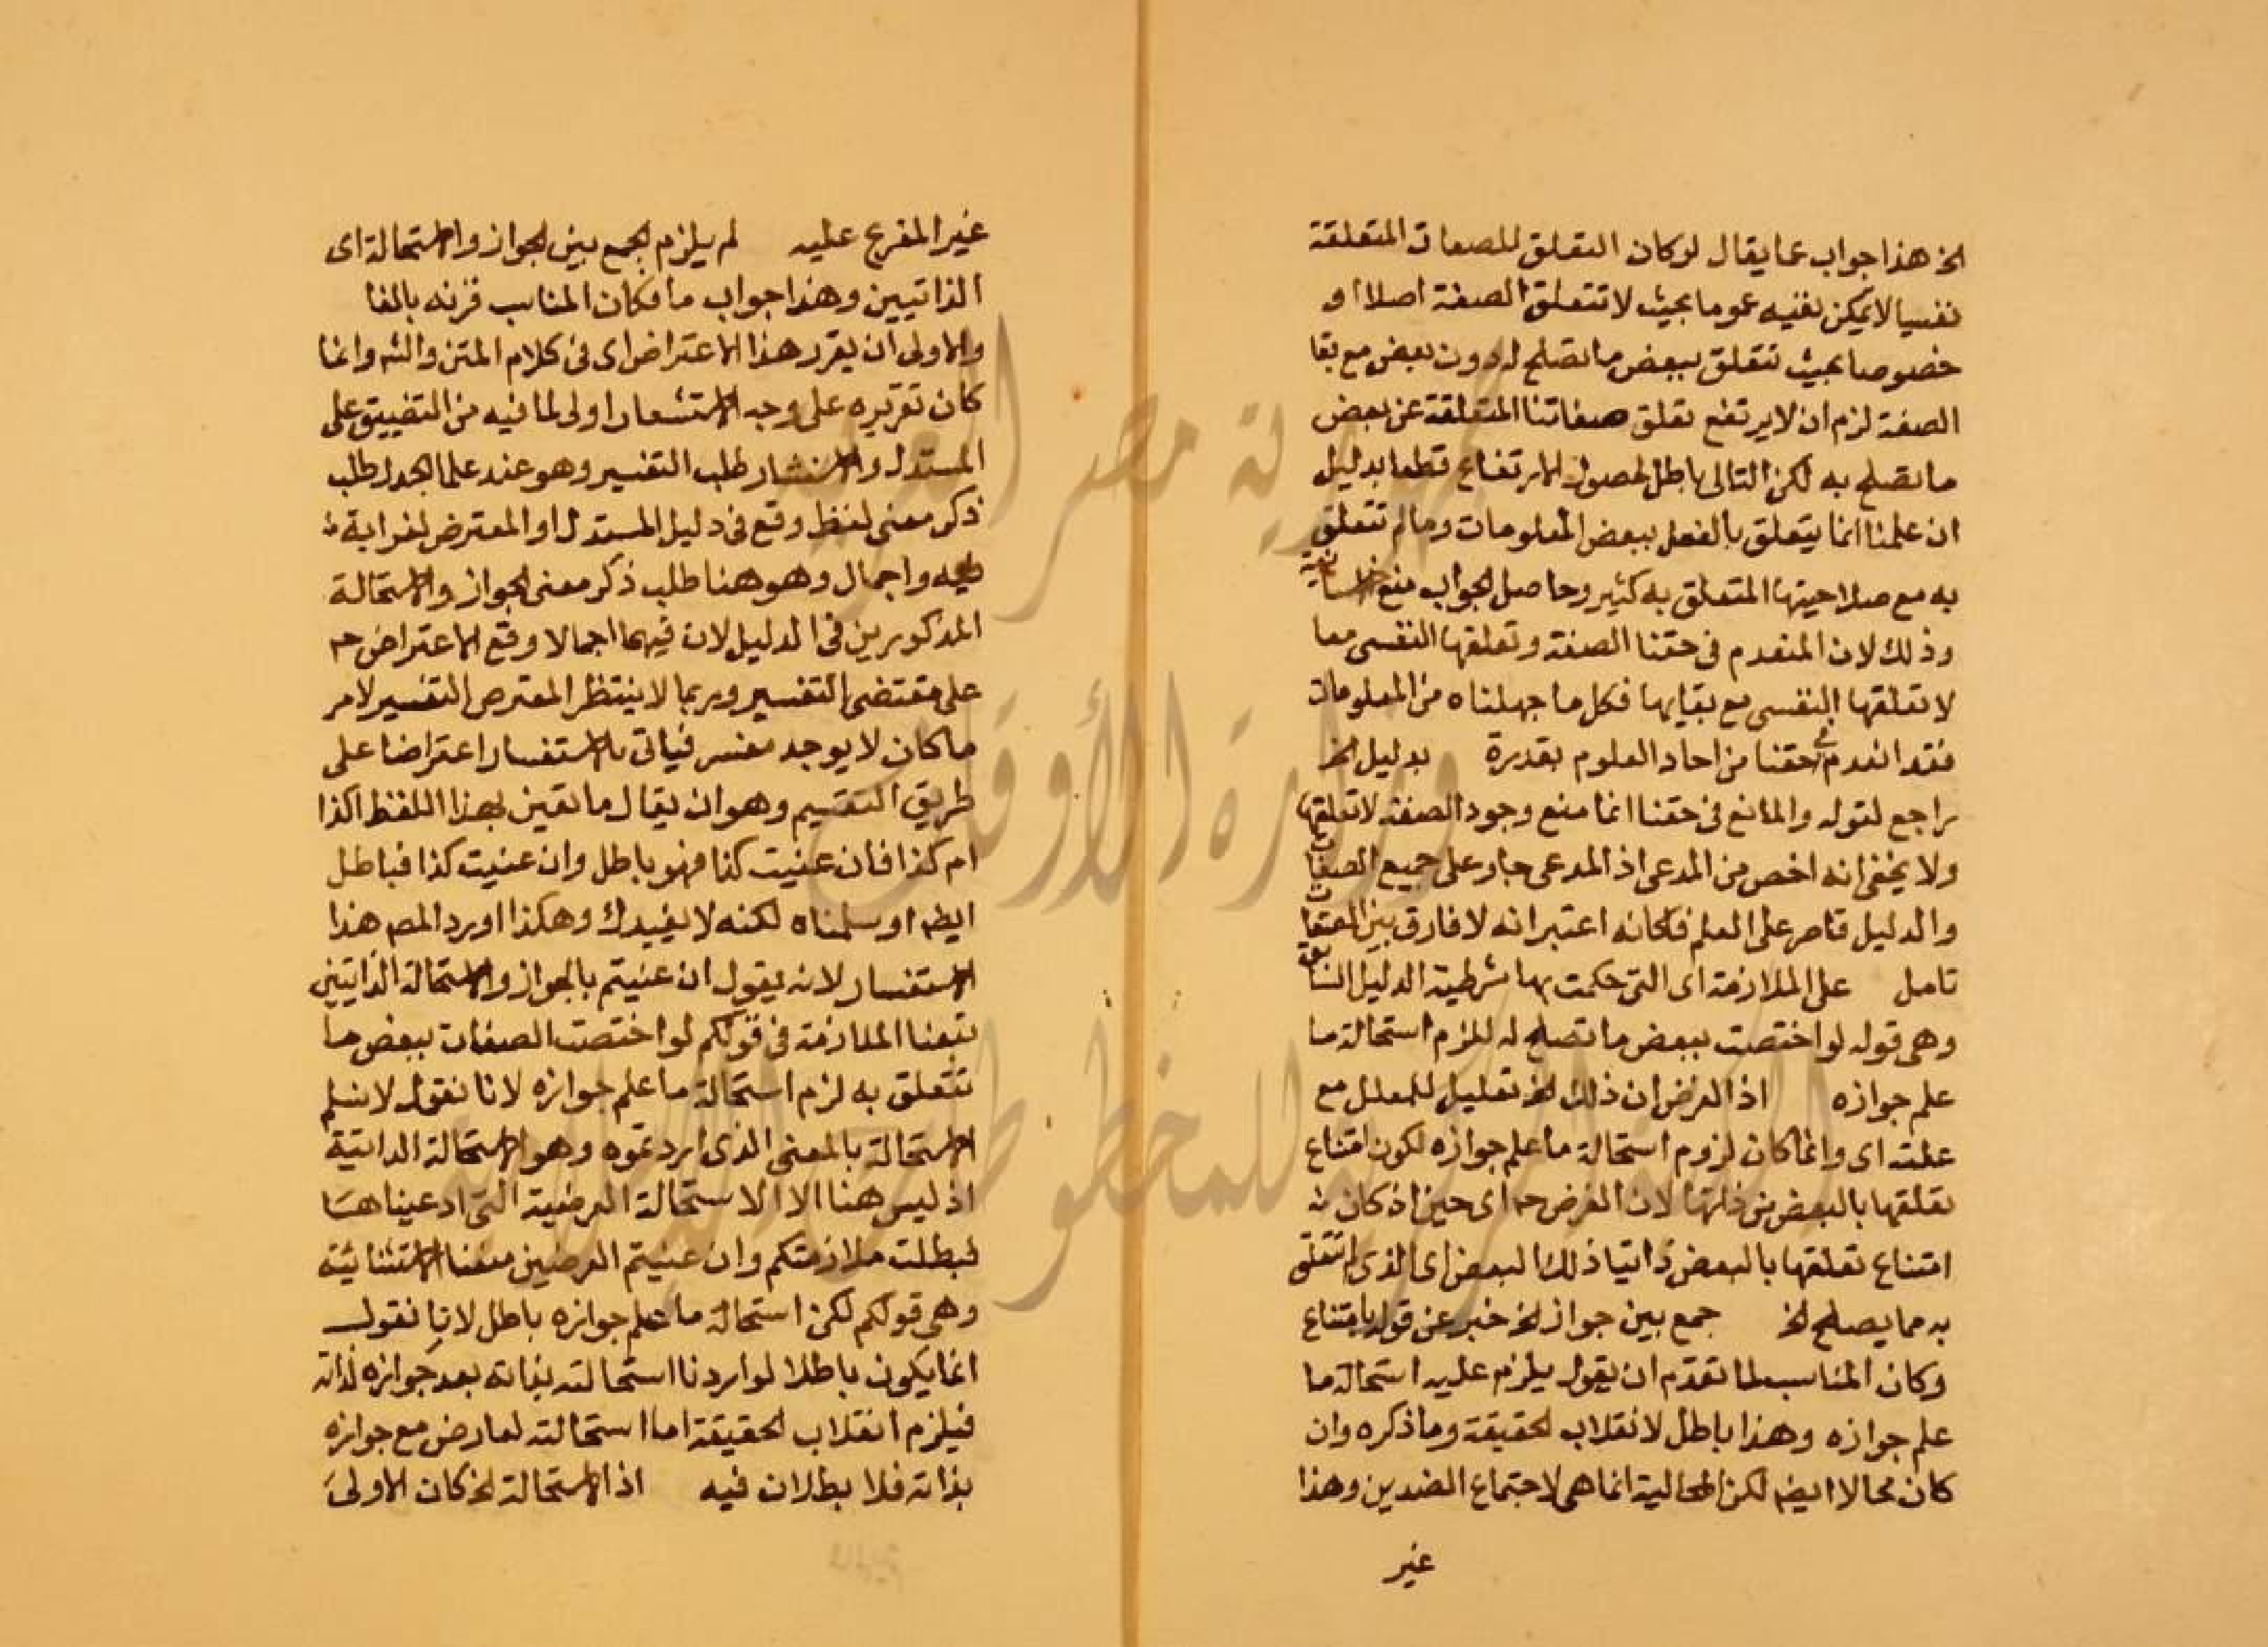 الخ هذا جواب عما يقال لو كان التعلق للصفات المتعلقة
نفسيا لا يمكن نفيه عموما بحيث لا تتعلق الصفة اصلا او
خصوصا بحيث تتعلق ببعض ما تصلح له دون بعض مع بقا
الصفة لزم ان لا يرتفع تعلق صفاتنا المتعلقة عن بعض
ما تصلح به لكن التالى باطل لحصول الارتفاع قطعا بدليل
ان علمنا انما يتعلق بالفعل ببعض المعلومات وما لم تتعلق
به مع صلاحيتها المتعلق به كثير وحاصل الجواب منع
وذلك لان المنعدم فى حقنا الصفة وتعلقها النفسى معا
لا تعلقها النفسى مع بقايها فكل ما جهلناه من المعلومات
فقد انعدم فى حقنا من احاد العلوم بقدرة بدليل الخ
راجع لقوله والمانع فى حقنا انما منع وجود الصفة لا تعلقها
ولا يخفى انه اخص من المدعى اذ المدعى جار على جميع الصفات
والدليل قاصر على العلم فكانه اعتبر انه لا فارق بين
تامل على الملازمة اى التى حكمت بها شرطية الدليل السابقة
وهى قوله لو اختصت ببعض ما تصلح له للزم استحالة ما
علم جوازه اذ الغرض ان ذلك الخ تعليل للمعلل مع
علته اى وانما كان لزوم استحالة ما علم جوازه لكون امتناع
تعلقها بالبعض من ذاتها لان الفرض ح اى حين اذ كان
امتناع تعلقها بالبعض ذاتيا ذلك البعض اى الذى لم تتعلق
به مما يصلح الخ جمع بين جواز الخ خبر عن قوله بامتناع
وكان المناسب لما تقدم ان يقول يلزم عليه استحالة ما
علم جوازه وهذا باطل لانقلاب الحقيقة وما ذكره وان
كان محالا ايضم لكن المحالية انما هى لاجتماع الضدين وهذا
غير
غير المفرع عليه لم يلزم الجمع بين الجواز والاستحالة اى
الذاتيين وهذا جواب ما فكان المناسب قرنه بالفا
والاولى ان يقرر هذا الاعتراض اى فى كلام المتن والشـ وانما
كان تقريره على وجه الاستفسار اولى لما فيه من التضييق على
المستدل والاستفسار طلب التفسير وهو عند علما الجدل طلب
ذكر معنى لفظ وقع فى دليل المستدل او المعترض لغرابة
فيه واجمال وهو هنا طلب ذكر معنى الجواز والاستحالة
المذكورين فى الدليل لان فيهما اجمالا وقع الاعتراض ح
على مقتضى التفسير وربما لا ينتظر المعترض التفسير لامر
ما كان لا يوجد مفسر فياتى بالاستفسار اعتراضا على
طريق التقسيم وهو ان يقال ما تعين بهذا اللفظ اكذا
ام كذا فان عنيت كذا فهو باطل وان عنيت كذا فباطل
ايضم او سلمناه لكنه لا يفيدك وهكذا اورد المصـ هذا
الاستفسار لانه يقول ان عنيتم بالجواز والاستحالة الذاتيين
منعنا الملازمة فى قولكم لو اختصت الصفات ببعض ما
تتعلق به لزم استحالة ما علم جوازه لانا نقول لا نسلم
الاستحالة بالمعنى الذى اردتموه وهو الاستحالة الذاتية
اذ ليس هنا الا الاستحالة العرضية التى ادعيناها
فبطلت ملازمتكم وان عنيتم العرضيين منعنا الاستثنائية
وهى قولكم لكن استحالة ما علم جوازه باطل لانا نقول
انما يكون باطلا لو اردنا استحالته بذاته بعد جوازه لذاته
فيلزم انقلاب الحقيقة اما استحالته لعارض مع جوازه
بذاته فلا بطلان فيه اذ الاستحالة الخ كان الاولى
جمهورية مصر العربية
وزارة الأوقاف
المكتبة المركزية للمخطوطات الإسلامية